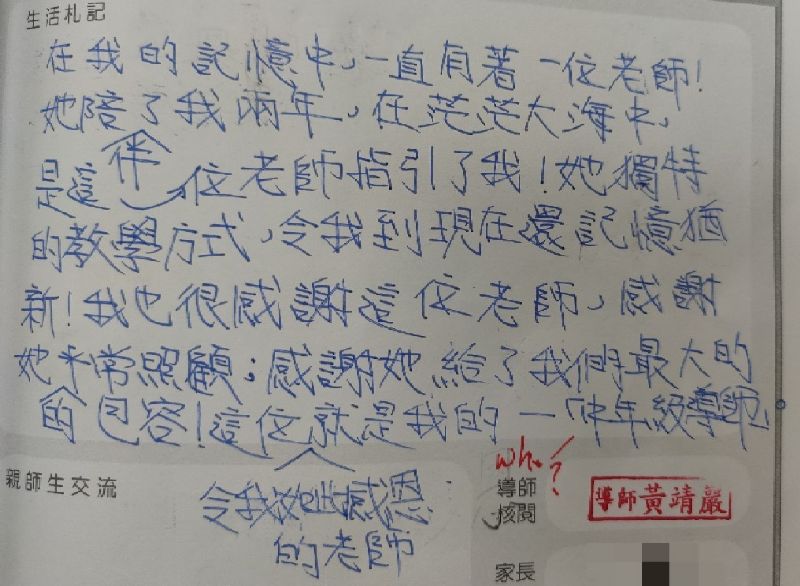 生活札記
在我的記憶中,一直有著一位老師!
她陪了我兩年,在茫茫大海中,
伴
是這位老師指引了我!她獨特
的教學方式,令我到現在還記憶猶
新!我也很感謝這位老師,感謝
她平常照顧;感謝她給了我們最大的
的包容!這位就是我的一、年級導師。
who?
親師生交流
導師
核閱
導師黃靖嚴
令我如此感恩
的老師
家長